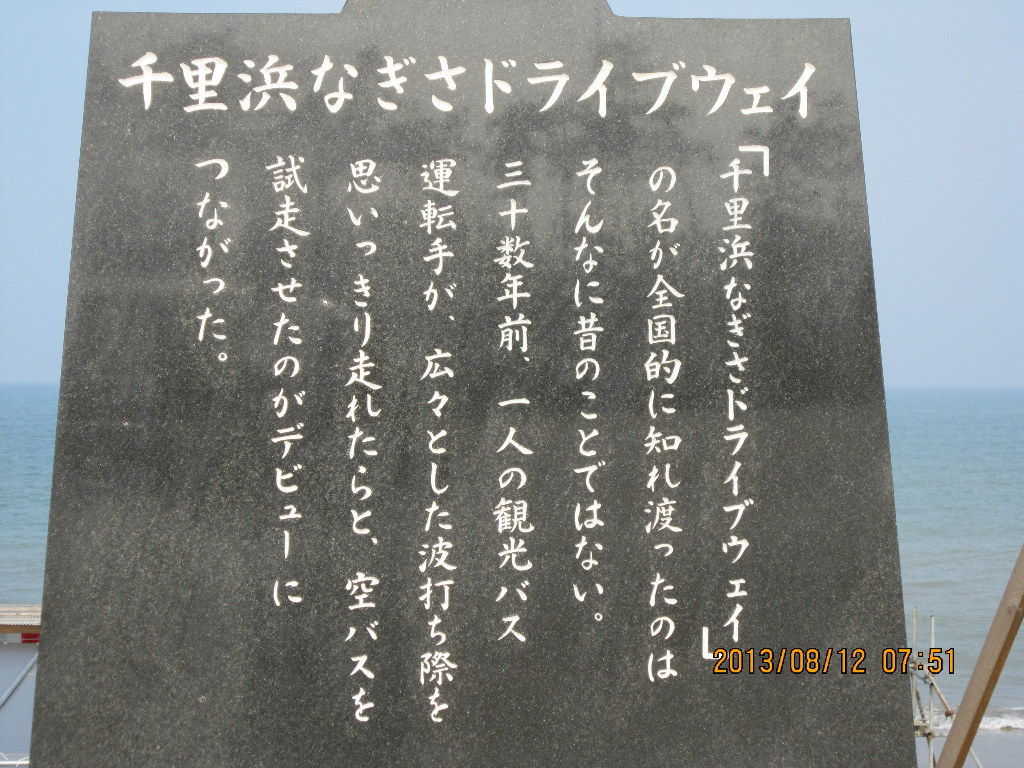 千里浜なぎさドライブウェイ
「千里浜なぎさドライブウェイ」
の名が全国的に知れ渡ったのは
そんなに昔のことではない。
三十数年前、一人の観光バス
運転手が、広々とした波打ち際を
思いっきり走れたらと、空バスを
試走させたのがデビューに
つながった。
2013/08/12 07:51